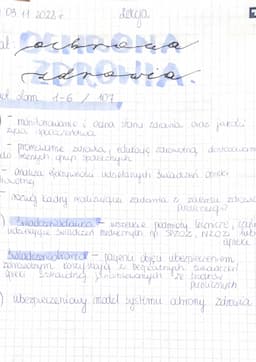 03 11 2022 r. Lekcja
OCHRONA
ochrona
ZDROWIA.
zdrowia
1-6 / 107
- monitorowanie i ocena stanu zdrowia oraz jakości
życia społeczeństwa
- promowanie zdrowia, edukację zdrowotną dostosowaną
do różnych grup społecznych
- analiza efektywności udzielanych świadczeń opieki
zdrowotnej
- rozwój kadry realizującej zadania z zakresu zdrowia
publicznego
Świadczeniodawca - wszelkie podmioty lecznicze,
udzielające świadczeń medycznych np. SPZOZ, NZOZ lub
apteki
Świadczeniobiorca - pacjenci objęci ubezpieczeniem
zdrowotnym korzystający z bezpłatnych świadczeń
opieki zdrowotnej finansowanych ze środków
publicznych
) ubezpieczeniowy model systemu ochrony zdrowia